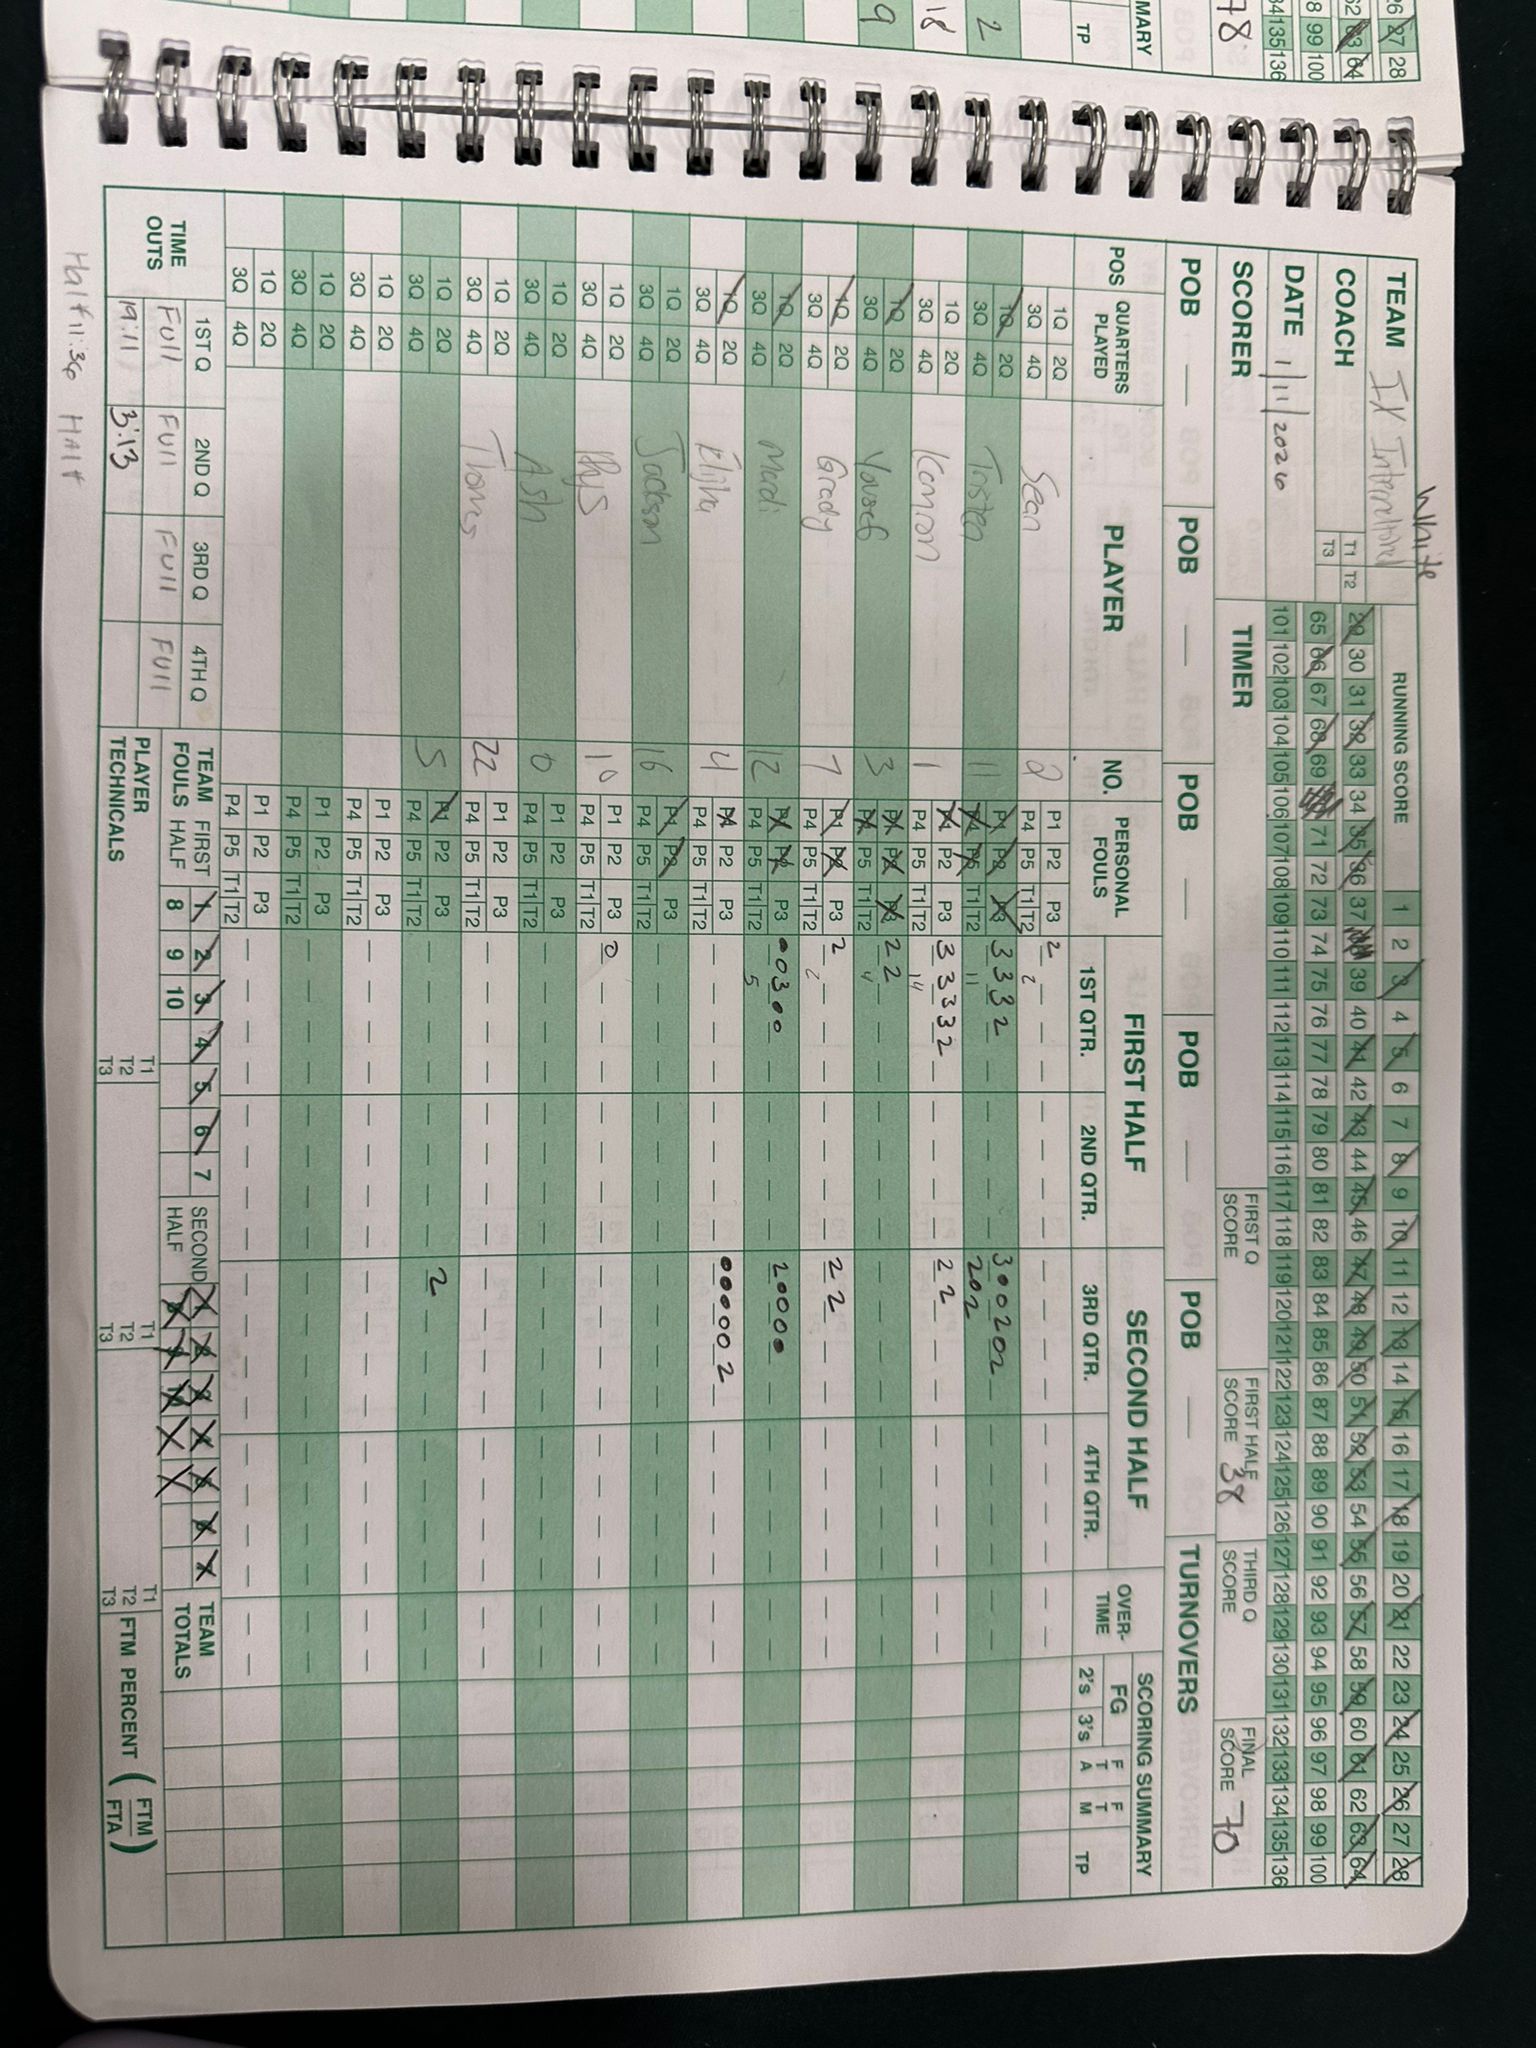 MARY
TP
2
18
9
26 27 28
62 63 64
98 99 100
134 135 136
78
White
TEAM IX International
RUNNING SCORE 1 2 3 4 5 6 7 8 9 10 11 12 13 14 15 16 17 18 19 20 21 22 23 24 25 26 27 28
COACH T1 T2 29 30 31 32 33 34 35 36 37 38 39 40 41 42 43 44 45 46 47 48 49 50 51 52 53 54 55 56 57 58 59 60 61 62 63 64
T3 65 66 67 68 69 71 72 73 74 75 76 77 78 79 80 81 82 83 84 85 86 87 88 89 90 91 92 93 94 95 96 97 98 99 100
DATE 1/11/2026 101 102 103 104 105 106 107 108 109 110 111 112 113 114 115 116 117 118 119 120 121 122 123 124 125 126 127 128 129 130 131 132 133 134 135 136
SCORER TIMER FIRST Q SCORE FIRST HALF SCORE 38 THIRD Q SCORE FINAL SCORE 70
POB — POB — POB — POB — POB — TURNOVERS
POS QUARTERS PLAYED PLAYER NO. PERSONAL FOULS FIRST HALF SECOND HALF OVER-TIME SCORING SUMMARY
1ST QTR. 2ND QTR. 3RD QTR. 4TH QTR. FG 2's 3's FTA FTM TP
1Q 2Q Sean 2 P1 P2 P3 2
3Q 4Q P4 P5 T1 T2 2
1Q 2Q Tristen 11 P1 P2 P3 3 3 3 2 3 0 0 2 0 2
3Q 4Q P4 P5 T1 T2 11 2 0 2
1Q 2Q Kamron 1 P1 P2 P3 3 3 3 3 2 2 2
3Q 4Q P4 P5 T1 T2 14
1Q 2Q Yousef 3 P1 P2 P3 2 2
3Q 4Q P4 P5 T1 T2 4
1Q 2Q Grady 7 P1 P2 P3 2 2 2
3Q 4Q P4 P5 T1 T2 2
1Q 2Q Madi 12 P1 P2 P3 0 0 3 0 0 2 0 0 0 0
3Q 4Q P4 P5 T1 T2 5
1Q 2Q Elijha 4 P1 P2 P3 0 0 0 0 0 2
3Q 4Q P4 P5 T1 T2
1Q 2Q Jackson 16 P1 P2 P3
3Q 4Q P4 P5 T1 T2
1Q 2Q Rhys 10 P1 P2 P3 0
3Q 4Q P4 P5 T1 T2
1Q 2Q Ash 0 P1 P2 P3
3Q 4Q P4 P5 T1 T2
1Q 2Q Thomas 22 P1 P2 P3
3Q 4Q P4 P5 T1 T2
1Q 2Q 5 P1 P2 P3 2
3Q 4Q P4 P5 T1 T2
1Q 2Q P1 P2 P3
3Q 4Q P4 P5 T1 T2
1Q 2Q P1 P2 P3
3Q 4Q P4 P5 T1 T2
1Q 2Q P1 P2 P3
3Q 4Q P4 P5 T1 T2
TIME OUTS 1ST Q 2ND Q 3RD Q 4TH Q TEAM FOULS FIRST HALF 1 2 3 4 5 6 7 8 9 10 SECOND HALF 1 2 3 4 5 6 7 8 9 10 TEAM TOTALS
Full Full Full Full
19:11 3:13 PLAYER TECHNICALS T1 T2 T3 T1 T2 T3 T1 T2 T3 FTM PERCENT (FTM/FTA)
Half 11:36 Half